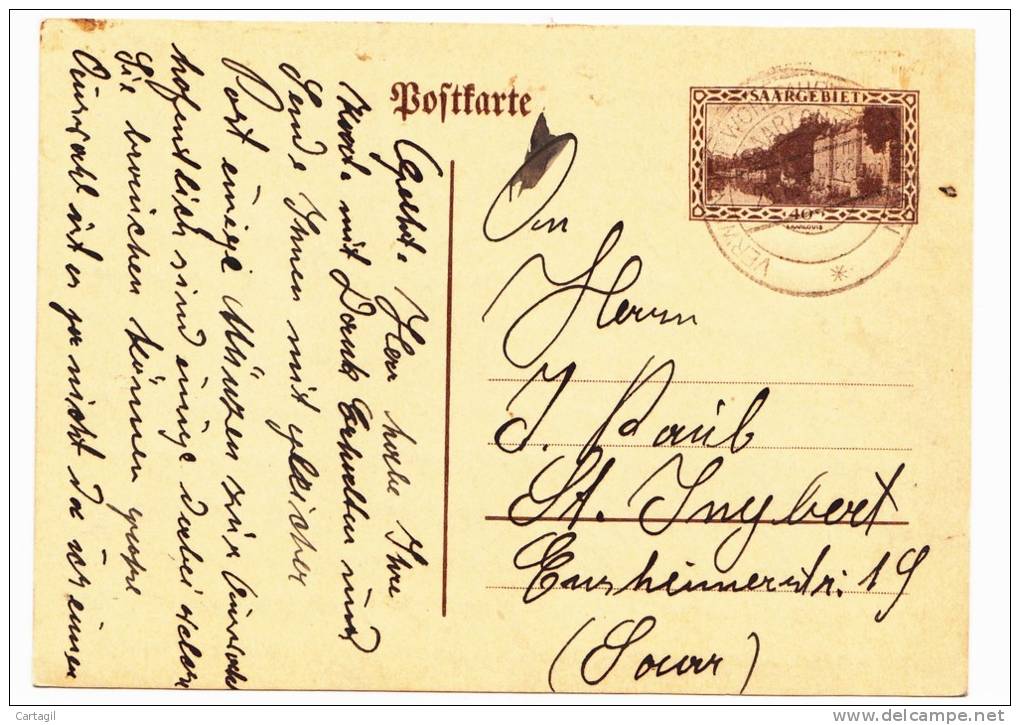 Postkarte
SAARGEBIET
40
SAARLOUIS
An
Herrn
J. Paul
St. Ingbert
Ensheimerstr. 19
(Saar)
Geehrt. Herr habe Ihre
Kart. mit Dank Erhalten und
Sende Ihnen mit gleicher
Post einige Münzen zur Ansicht
hofentlich sind einige dabei welche
Sie brauchen können grose
Auswahl ist es ja nicht da ich einen
Cartagil
delcampe.net